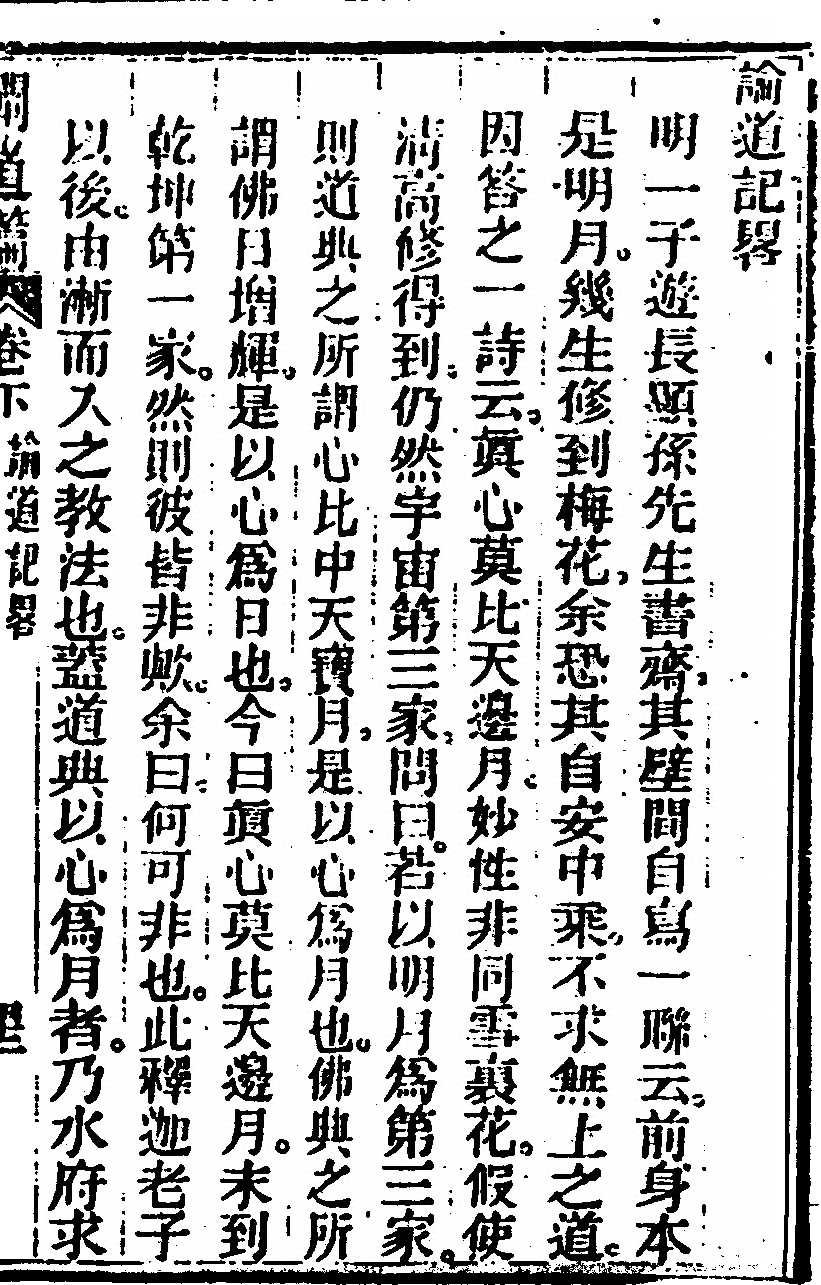 論道記畧
明一子遊長顯孫先生書齋其壁間自寫一聯云前身本
是明月。幾生修到梅花。余恐其自安中乘。不求無上之道。
因答之一詩云。眞心莫比天邊月。妙性非同雪裏花。假使
淸高修得到。仍然宇宙第三家。問曰。若以明月爲第三家。
則道典之所謂心比中天寶月。是以心爲月也。佛典之所
謂佛日增輝。是以心爲日也。今曰眞心莫比天邊月。未到
乾坤第一家。然則彼皆非歟。余曰。何可非也。此釋迦老子
以後。由漸而入之教法也。蓋道典以心爲月者。乃水府求
卷下 論道記畧